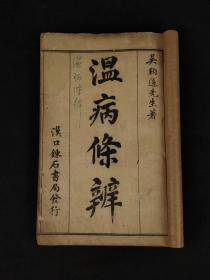 吴鞠通先生著
溫病條辨
漢口鍊石書局發行